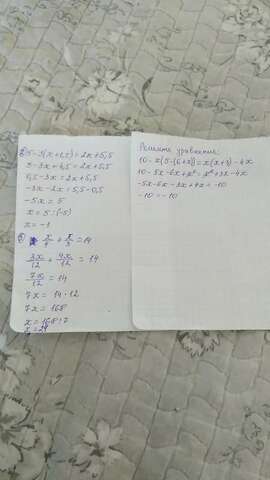 2) 5-3(x+1,5)=2x+5,5
5-3x+4,5=2x+5,5
0,5-3x=2x+5,5
-3x-2x=5,5-0,5
-5x=5
x=5:(-5)
x=-1
x/4+x/3=14
3x/12+4x/12=14
7x/12=14
7x=14·12
7x=168
x=168:7
x=24
Решите уравнение
10-x(5-(6+x))=x(x+3)-4x
10-5x-6x+x²=x²+3x-4x
-5x-6x-3x+4x=-10
-10=-10